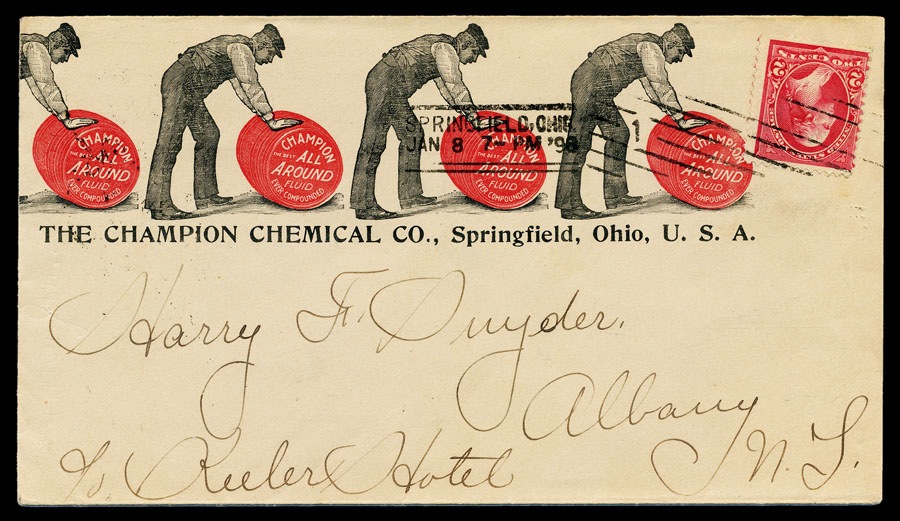 CHAMPION
THE BEST ALL
AROUND
FLUID
EVER COMPOUNDED
CHAMPION
THE BEST ALL
AROUND
FLUID
EVER COMPOUNDED
CHAMPION
THE BEST ALL
AROUND
FLUID
EVER COMPOUNDED
CHAMPION
THE BEST ALL
AROUND
FLUID
EVER COMPOUNDED
SPRINGFIELD, OHIO
JAN 8 7-PM '98
1
2 2
THE CHAMPION CHEMICAL CO., Springfield, Ohio, U. S. A.
Harry F. Snyder.
Albany
N. Y.
c/o Keeler Hotel